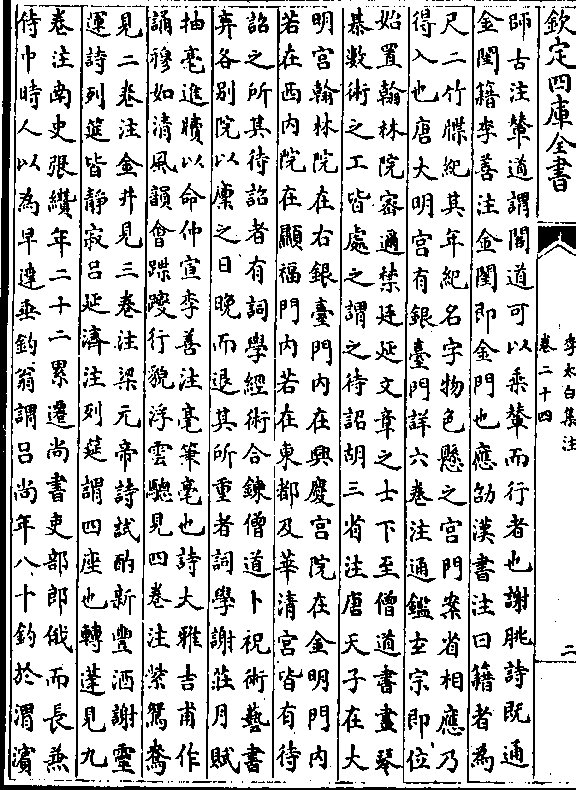 欽定四庫全書
李太白集注
卷二十四
二
師古注輦道謂閣道可以乘輦而行者也謝朓詩既通
金閨籍李善注金閨即金門也應劭漢書注曰籍者為
尺二竹牒紀其年紀名字物色懸之宫門案省相應乃
得入也唐大明宫有銀臺門詳六卷注通鑑玄宗即位
始置翰林院密邇禁廷延文章之士下至僧道書畫琴
棊數術之工皆處之謂之待詔胡三省注唐天子在大
明宫翰林院在右銀臺門内在興慶宫院在金明門内
若在西内院在顯福門内若在東都及華清宫皆有待
詔之所其待詔者有詞學經術合鍊僧道卜祝術藝書
弈各别院以廩之日晚而退其所重者詞學謝莊月賦
抽毫進牘以命仲宣李善注毫筆毫也詩大雅吉甫作
誦穆如清風韻會蹀躞行貌浮雲驄見四卷注紫鴛鴦
見二卷注金井見三卷注梁元帝詩試酌新豐酒謝靈
運詩列筵皆静寂吕延濟注列筵謂四座也轉蓬見九
卷注南史張纘年二十二累遷尚書吏部郎俄而長兼
侍中時人以為早達垂釣翁謂吕尚年八十釣於渭濱